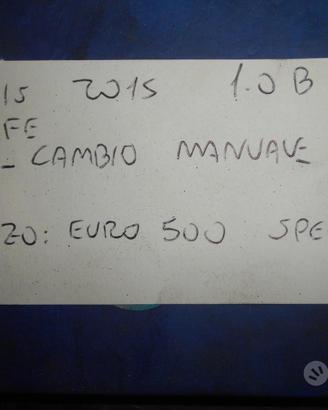 15 2015 1.0 B
FE
- CAMBIO MANUALE
ZO: EURO 500 SPE